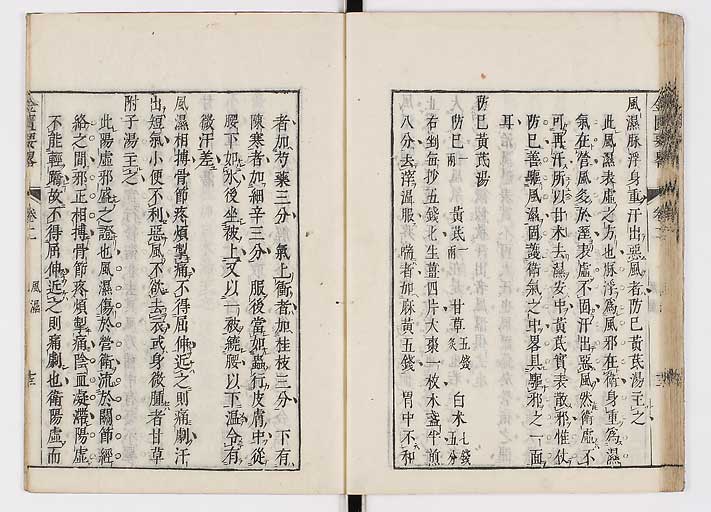 風濕脉浮身重汗出惡風者防已黃芪湯主之
此風濕表虛之方也脉浮爲風邪在衛身重爲濕
氣在營風多於溼表虛不固汗出惡風然衛虛不
可再汗所以甘术去濕安中黃芪實表散邪惟仗
防已善驅風濕固護衛氣之中畧具驅邪之一面
耳
防已黃芪湯
防已一兩 黃芪一兩 甘草五錢炙 白术七錢五分
右剉每抄五錢匕生薑四片大棗一枚水盞半煎
八分去滓溫服 喘者加麻黃五錢 胃中不和
者加芍藥三分 氣上衝者加桂枝三分 下有
陳寒者加細辛三分 服後當如蟲行皮膚中從
腰下如氷後坐被上又以一被繞腰以下溫令有
微汗差
風濕相摶骨節疼煩掣痛不得屈伸近之則痛劇汗
出短氣小便不利惡風不欲去衣或身微腫者甘草
附子湯主之
此陽虛邪盛之證也風濕傷於營衛流於關節經
絡之間邪正相摶骨節疼煩掣痛陰血凝滯陽虛
不能輕矯故不得屈伸近之則痛劇也衛陽虛而
金匱要畧 卷二 風濕